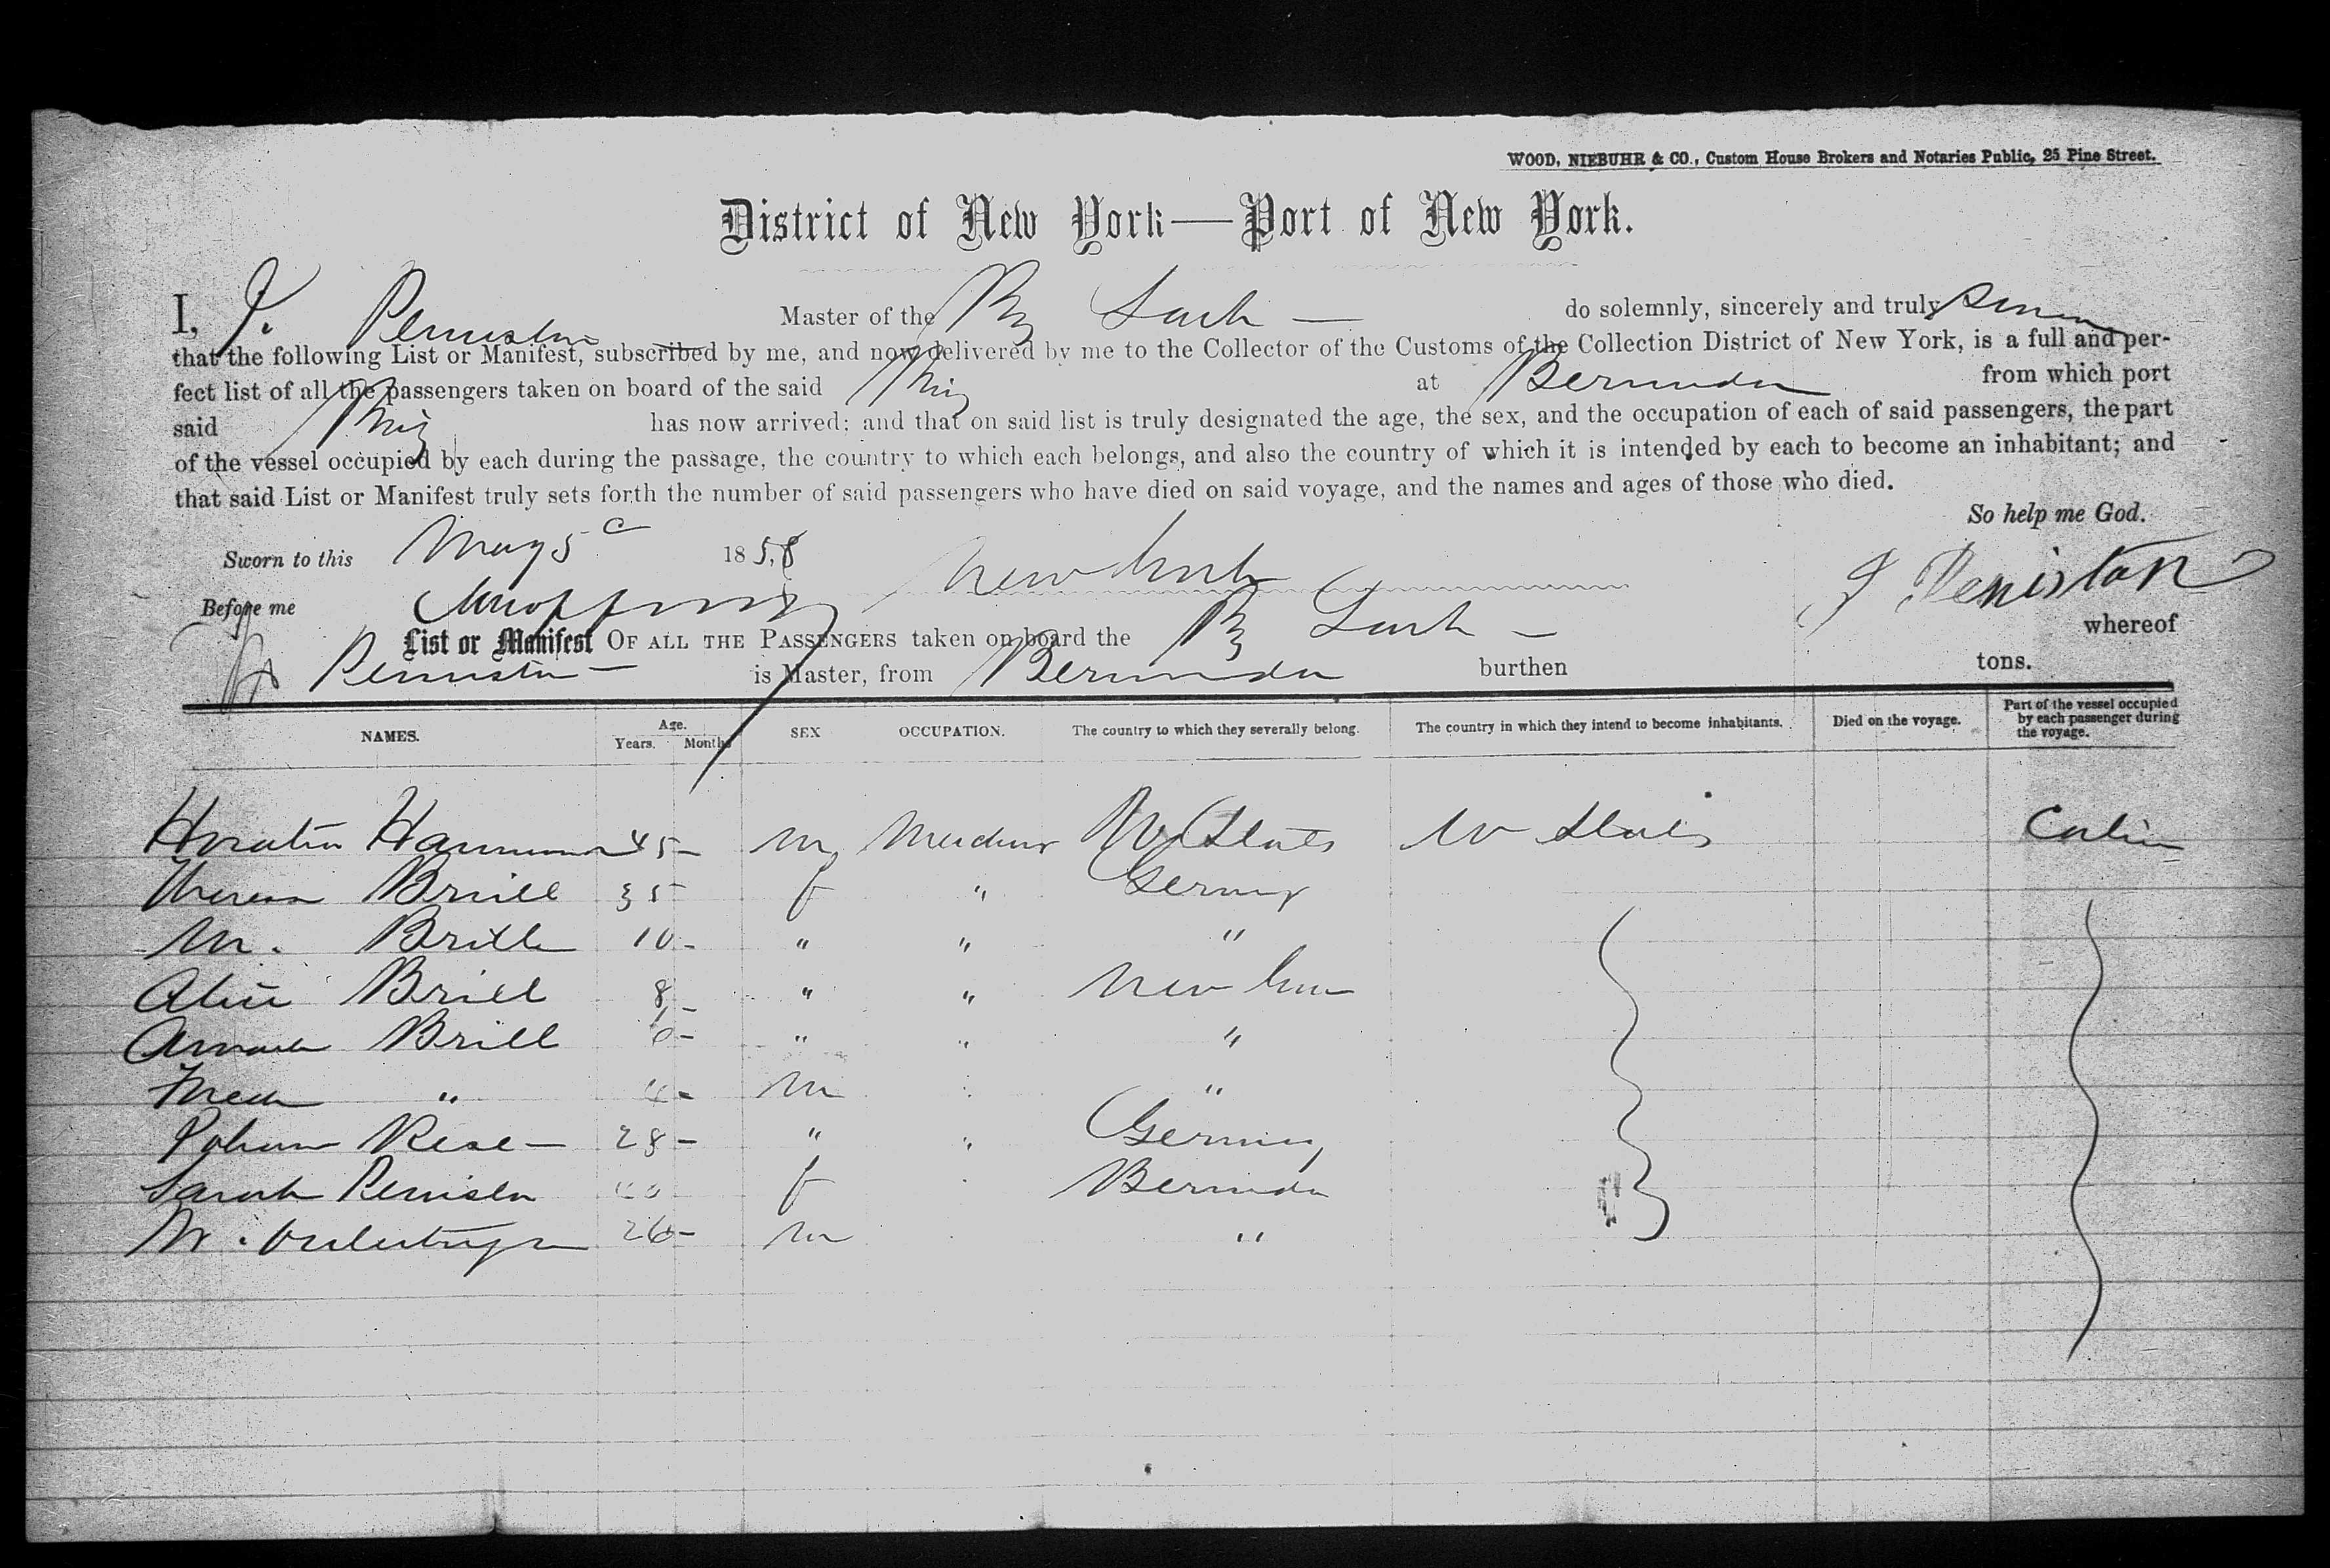 WOOD, NIEBUHR & CO., Custom House Brokers and Notaries Public, 25 Pine Street.
District of New York—Port of New York.
I, J. Peniston Master of the Brig Lark — do solemnly, sincerely and truly swear
that the following List or Manifest, subscribed by me, and now delivered by me to the Collector of the Customs of the Collection District of New York, is a full and per-
fect list of all the passengers taken on board of the said Brig at Bermuda from which port
said Brig has now arrived: and that on said list is truly designated the age, the sex, and the occupation of each of said passengers, the part
of the vessel occupied by each during the passage, the country to which each belongs, and also the country of which it is intended by each to become an inhabitant; and
that said List or Manifest truly sets forth the number of said passengers who have died on said voyage, and the names and ages of those who died.
So help me God.
Sworn to this May 5 1858 New York
Before me J Peniston
List or Manifest OF ALL THE PASSENGERS taken on board the Brig Lark — whereof
Peniston — is Master, from Bermuda burthen tons.
NAMES. Age. Years. Months SEX OCCUPATION. The country to which they severally belong. The country in which they intend to become inhabitants. Died on the voyage. Part of the vessel occupied by each passenger during the voyage.
Horatio 45 - m U States U States Cabin
Theresa Brill 35 f " Germy
M. Brill 10 - " " "
Alice Brill 8 - " " New York
Brill 6 - " " "
Fred " 4 - m "
Johan Rese — 28 - " " Germany
Sarah Peniston f Bermuda
W. 26 - m "